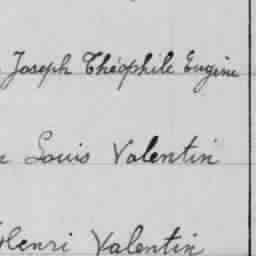 Joseph Théophile Eugène
Louis Valentin
Henri Valentin